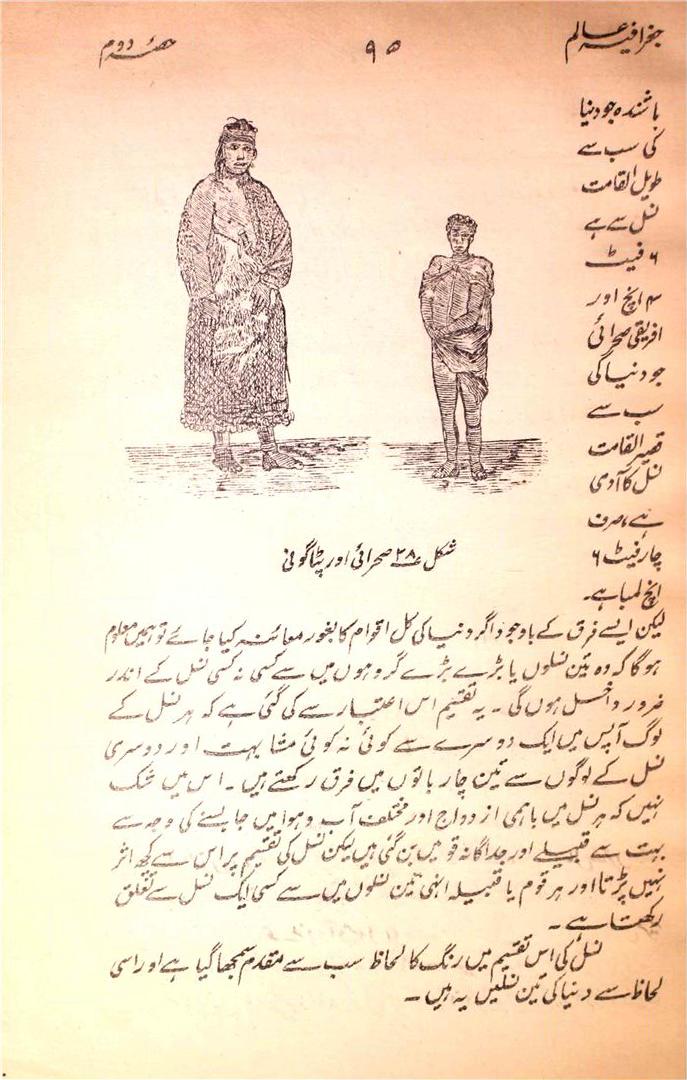 جغرافیہ عالم ۹۵ حصہ دوم
باشندہ جو دنیا
کی سب سے
طویل القامت
نسل سے ہے
۶ فیٹ
۴ انچ اور
افریقی صحرائی
جو دنیا کی
سب سے
قصیر القامت
نسل کا آدمی
ہے، صرف
چار فیٹ ۶
انچ لمبا ہے۔
شکل ۲۸ صحرائی اور پٹاگونی
لیکن ایسے فرق کے باوجود اگر دنیا کی کل اقوام کا بغور معائنہ کیا جائے تو ہمیں معلوم
ہوگا کہ وہ تین نسلوں یا بڑے بڑے گروہوں میں سے کسی نہ کسی نسل کے اندر
ضرور داخل ہوں گی۔ یہ تقسیم اس اعتبار سے کی گئی ہے کہ ہر نسل کے
لوگ آپس میں ایک دوسرے سے کوئی نہ کوئی مشابہت اور دوسری
نسل کے لوگوں سے تین چار باتوں میں فرق رکھتے ہیں۔ اس میں شک
نہیں کہ ہر نسل میں باہمی ازدواج اور مختلف آب و ہوا میں جا بسنے کی وجہ سے
بہت سے قبیلے اور جداگانہ قومیں بن گئی ہیں لیکن نسل کی تقسیم پر اس سے کچھ اثر
نہیں پڑتا اور ہر قوم یا قبیلہ انہی تین نسلوں میں سے کسی ایک نسل سے تعلق
رکھتا ہے۔
نسل کی اس تقسیم میں رنگ کا لحاظ سب سے مقدم سمجھا گیا ہے اور اسی
لحاظ سے دنیا کی تین نسلیں یہ ہیں۔